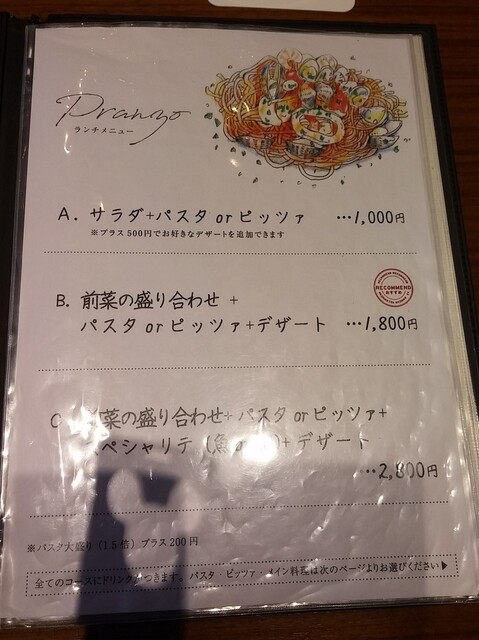 Pranzo
ランチメニュー
A. サラダ+パスタ or ピッツァ …1,000円
※プラス500円でお好きなデザートを追加できます
RECOMMEND
B. 前菜の盛り合わせ +
パスタ or ピッツァ+デザート …1,800円
前菜の盛り合わせ+ パスタ or ピッツァ+
スペシャリテ (魚 + デザート
…2,800円
※パスタ大盛り (1.5倍) プラス200円
全てのコースにドリンクがつきます。パスタ・ピッツァ・メイン料理は次のページよりお選びください▶